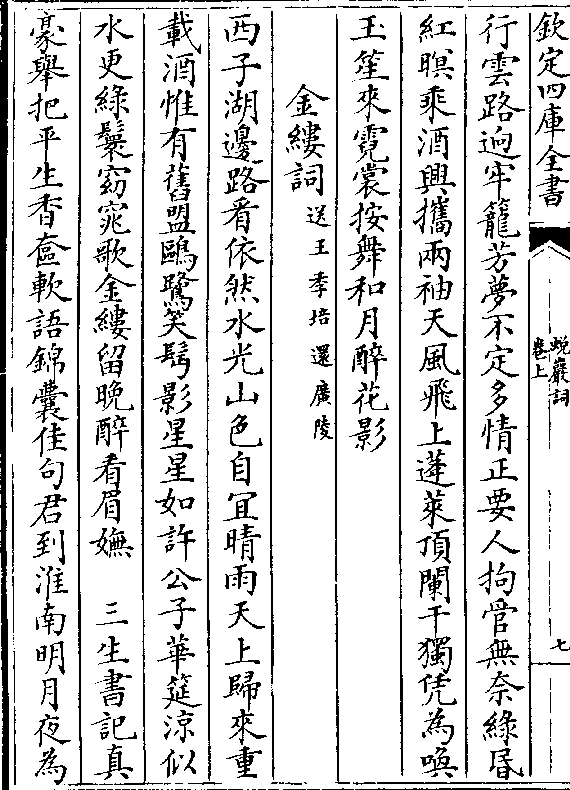 欽定四庫全書
蛻巖詞
卷上
七
行雲路逈牢籠芳夢不定多情正要人拘管無奈緑昬
紅暝乘酒興攜兩袖天風飛上蓬萊頂闌干獨凭為喚
玉笙來霓裳按舞和月醉花影
金縷詞送王季培還廣陵
西子湖邊路看依然水光山色自宜晴雨天上歸來重
載酒惟有舊盟鷗鷺笑髩影星星如許公子華筵涼似
水更綠鬟窈窕歌金縷留晚醉看眉嫵　三生書記真
豪舉把平生香奩軟語錦囊佳句君到淮南明月夜為